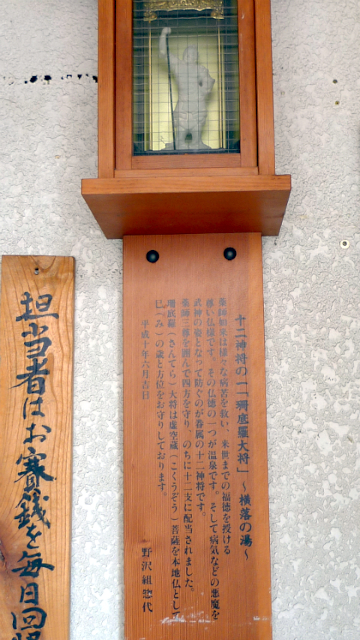 十二神将の一「珊底羅大将」～横落の湯～
薬師如来は様々な病苦を救い、来世までの福徳を授ける
尊い仏様です。その仏徳の一つが温泉です。そして病気などの悪魔を
武神の姿となって防ぐのが眷属の十二神将です。
薬師三尊を囲んで四方を守り、のちに十二支に配当されました。
珊底羅（さんてら）大将は虚空蔵（こくうぞう）菩薩を本地仏とし
（ねずみ）の歳と方位をお守りしております。
平成十年六月吉日
野沢組惣代
担当者はお賽銭を毎日回